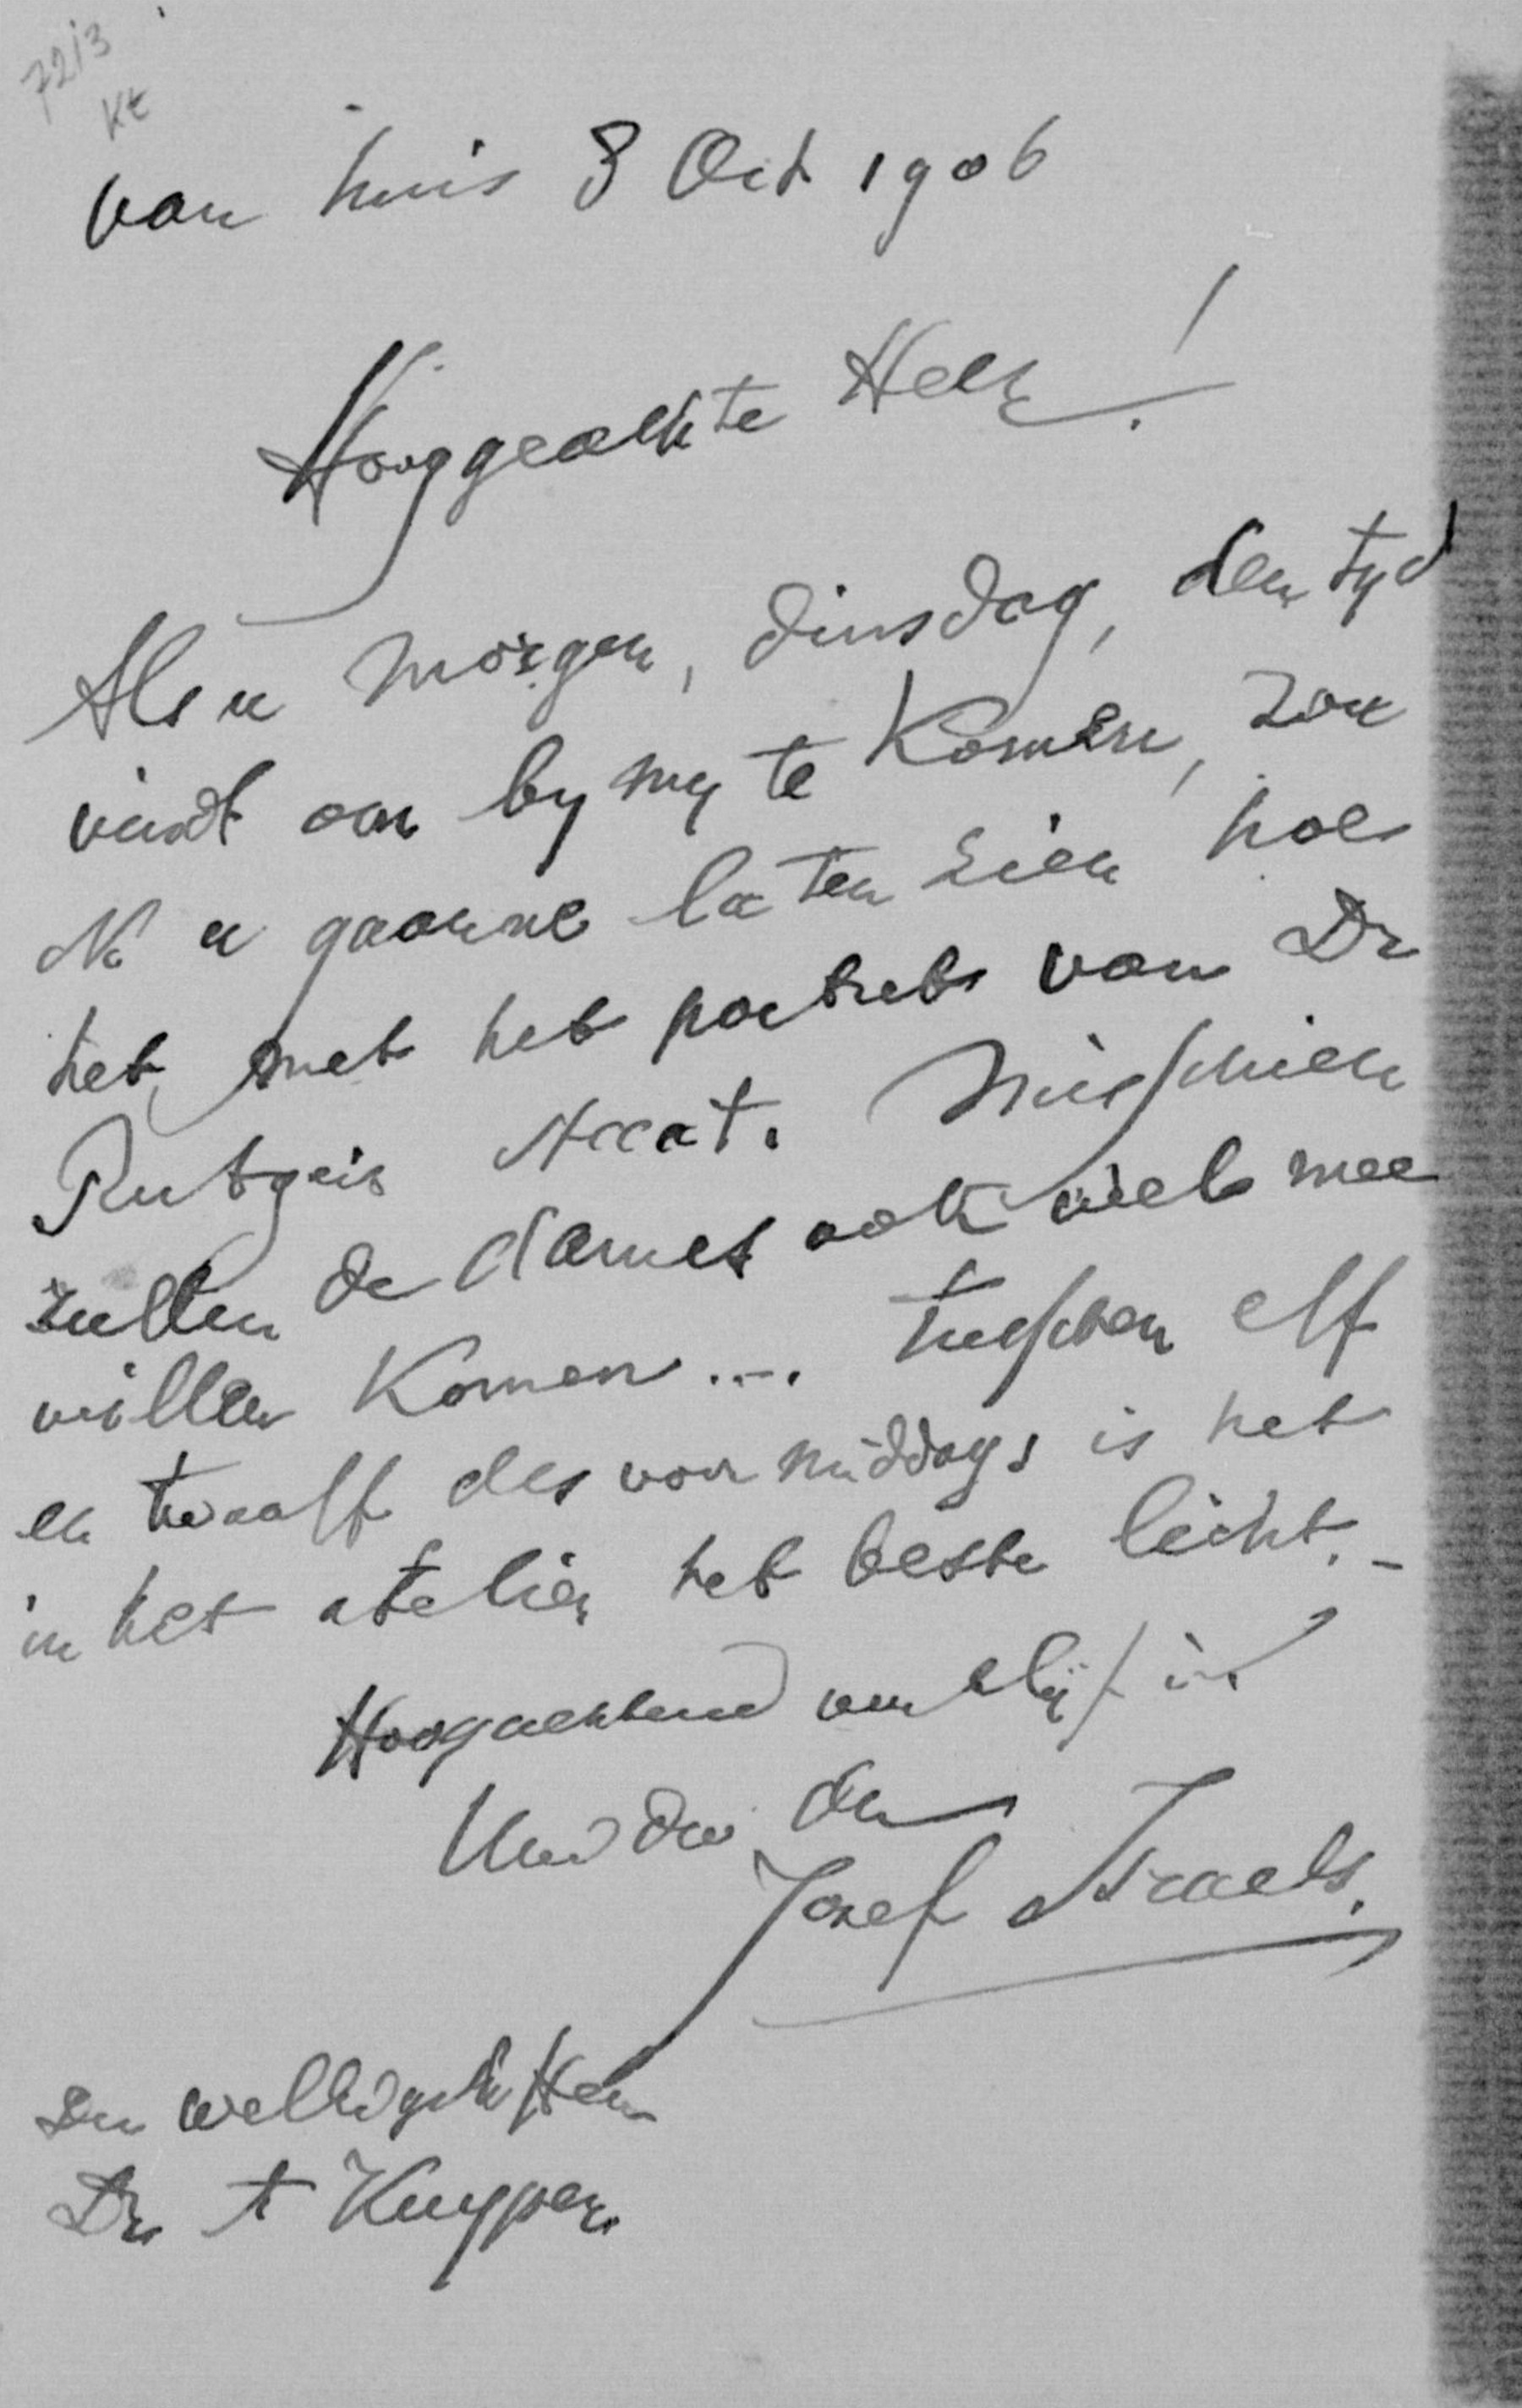 7213
Kt
van huis 8 Oct 1906
Hooggeachte Heer!
Als u morgen, dinsdag, den tyd
vindt om by my te Komen, zou
ik u gaarne laten zien hoe
het met het portret van Dr
Rutgers staat. Misschien
zullen de dames ook wel mee
willen Komen.... tusschen elf
en twaalf des voormiddags is het
in het atelier het beste licht. -
Hoogachtend verblijf ik
Uw dw dn
Jozef Israels.
Den weledgel Heer
Dr A Kuyper.